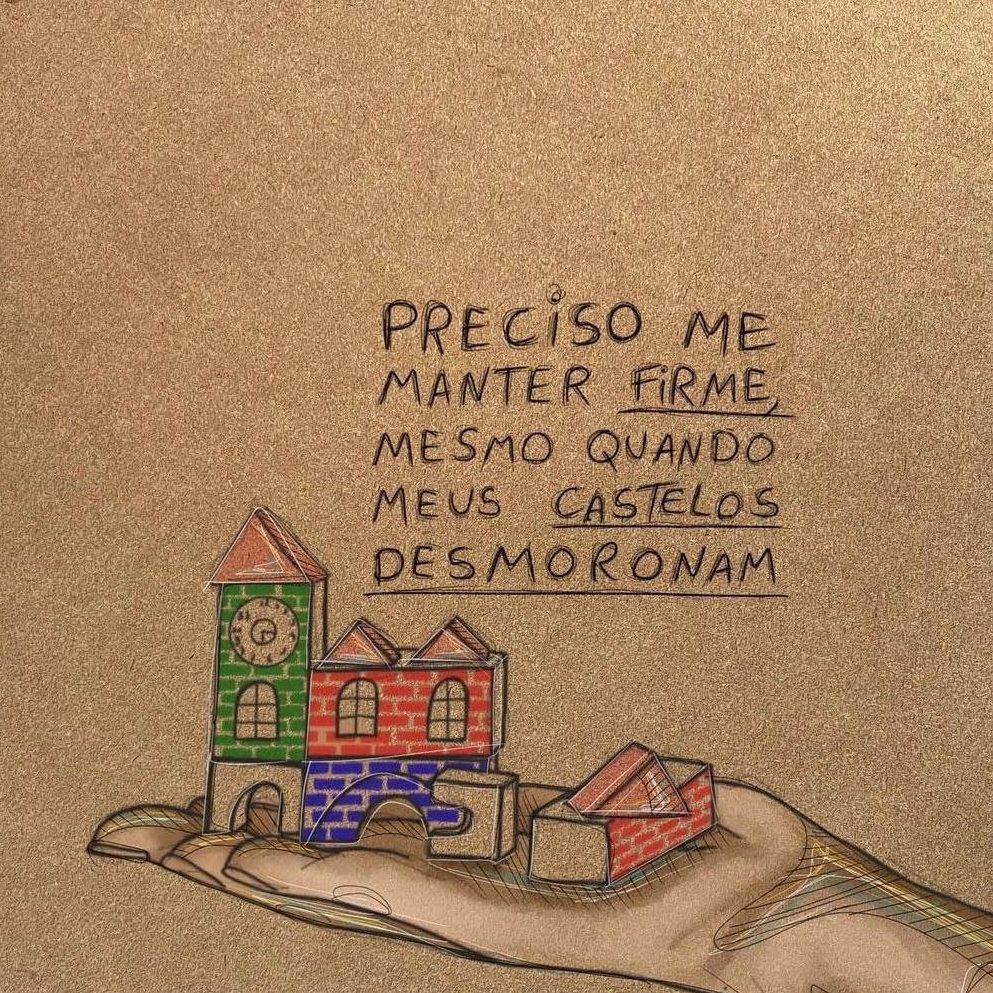 PRECISO ME
MANTER FIRME,
MESMO QUANDO
MEUS CASTELOS
DESMORONAM